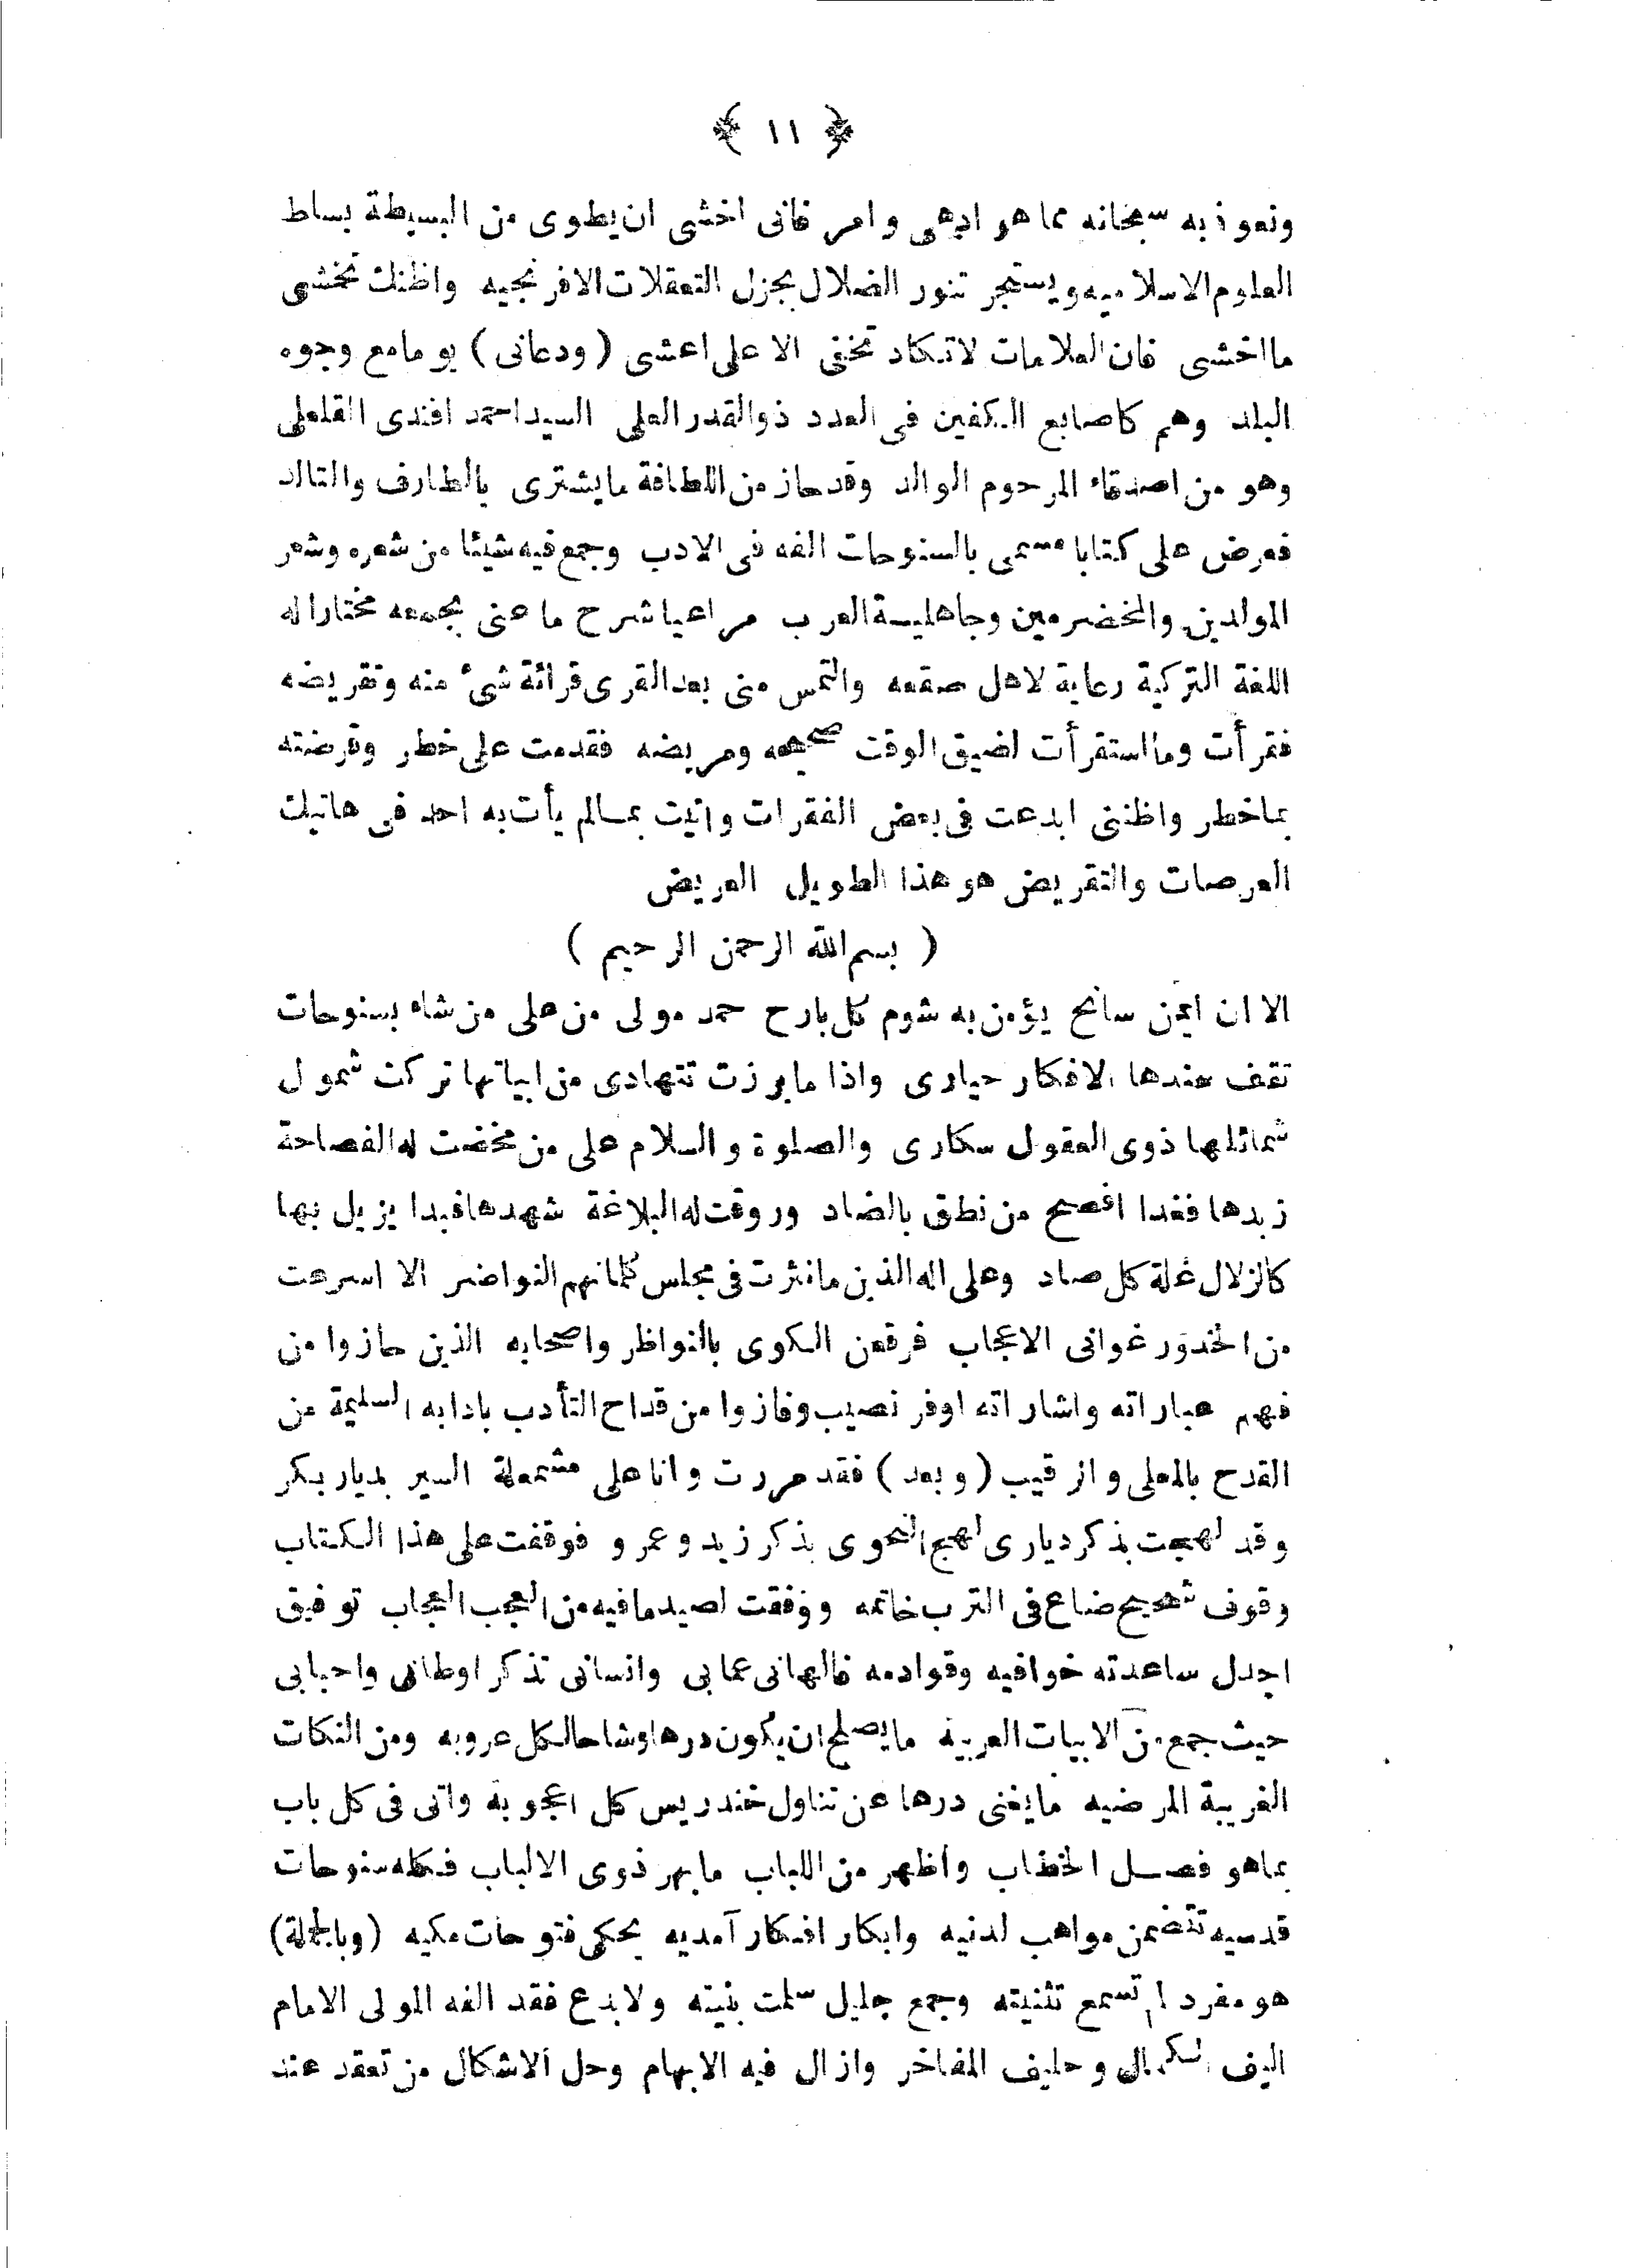 ﴿ ١١ ﴾
ونعوذ به سبحانه مما هو ادهى وامر فانى اخشى ان يطوى من البسيطة بساط
العلوم الاسلاميه ويستجر تنور الضلال بجزل التعقلات الافرنجيه واظنك تخشى
ما اخشى فان العلامات لا تكاد تخفى الا على اعشى (ودعانى) يوما مع وجوه
البلد وهم كاصابع الكفين فى العدد ذوالقدر العلى السيد احمد افندى القلعلى
وهو من اصدقاء المرحوم الوالد وقد حاز من اللطافة ما يشترى بالطارف والتالد
فعرض على كتابا مسمى بالسنوحات الفه فى الادب وجمع فيه شيئا من شعره وشعر
المولدين والمخضرمين وجاهليـة العرب مراعيا شرح ما عنى بجمعه مختارا له
اللغة التركية رعاية لاهل صقعه والتمس منى بعد القرى قرائة شئ منه وتقريضه
فقرأت وما استقرأت لضيق الوقت صحيحه ومريضه فقدمت على خطر وقرضته
بما خطر واظننى ابدعت فى بعض الفقرات واتيت بمـالم يأت به احد فى هاتيك
العرصات والتقريض هو هذا الطويل العريض
( بسم الله الرحمن الرحيم )
الا ان ايمن سانح يؤمن به شوم كل بارح حمد مولى من على من شاء بسنوحات
تقف عندها الافكار حيارى واذا ما برزت تتهادى من ابياتها تركت شمول
شمائلها ذوى العقول سكارى والصلوة والسلام على من مخضت له الفصاحة
زبدها فغدا افصح من نطق بالضاد وروقت له البلاغة شهدها فبدا يزيل بها
كالزلال غلة كل صاد وعلى اله الذين ما نثرت فى مجلس كلماتهم النواضر الا اسرعت
من الخدور غوانى الاعجاب فرقعن الكوى بالنواظر واصحابه الذين حازوا من
فهم عباراته واشاراته اوفر نصيب وفازوا من قداح التأدب بادابه السليمة عن
القدح بالمعلى والرقيب (وبعد) فقد مررت وانا على مشمعلة السير بديار بكر
وقد لهجت بذكر ديارى لهج النحوى بذكر زيد وعمرو فوقفت على هذا الكتاب
وقوف شحيح ضاع فى الترب خاتمه ووفقت لصيد ما فيه من العجب العجاب توفيق
اجدل ساعدته خوافيه وقوادمه فالهانى عما بى وانسانى تذكر اوطانى واحبابى
حيث جمع من الابيات العربيه ما يصلح ان يكون درها وشاحا لكل عروبه ومن النكات
الغريبة المرضيه ما يغنى درها عن تناول خندريس كل اعجوبه واتى فى كل باب
بما هو فصـل الخطاب واظهر من اللباب ما بهر ذوى الالباب فكله سنوحات
قدسيه تتضمن مواهب لدنيه وابكار افكار آمديه يحكى فتوحات مكيه (وبالجملة)
هو مفرد لم تسمع تثنيته وجمع جليل سلمت بنيته ولا بدع فقد الفه المولى الامام
اليف الكمال وحليف المفاخر وازال فيه الابهام وحل الاشكال من تعقد عند